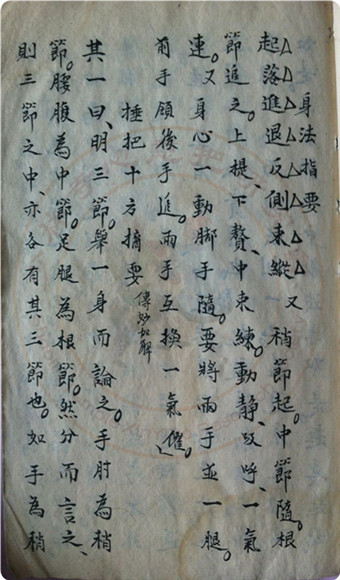 身法指要
起落進退反側束縱一又稍節起。中節隨。根
節追之。上提、下贅、中束練。動靜、以呼、一氣
連。又身心一動脚手隨。要將兩手並一腿。
前手領後手追。兩手互換一氣催。
捶把十方摘要 傳妙如解
其一曰、明三節。舉一身而論之。手肘為稍
節。腰腹為中節。足腿為根節。然分而言之、
則三節之中、亦各有其三節也。如手為稍